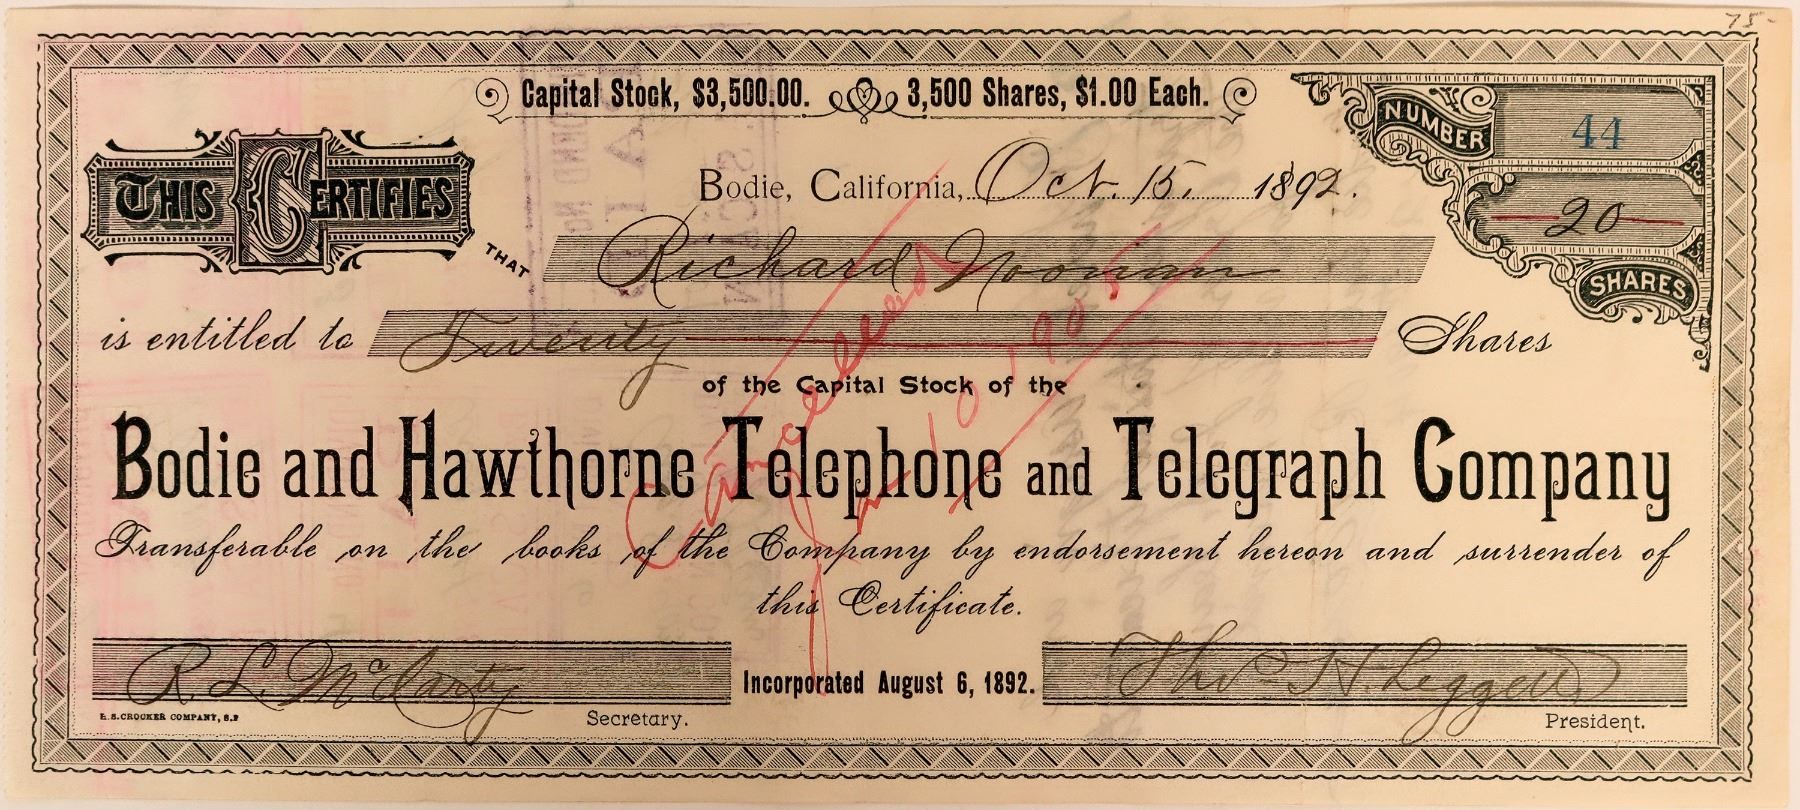 75-
Capital Stock, $3,500.00. 3,500 Shares, $1.00 Each.
NUMBER 44
THIS CERTIFIES
Bodie, California, Oct. 15, 1892.
20
SHARES
THAT Richard Noonan
is entitled to Twenty Shares
of the Capital Stock of the
Bodie and Hawthorne Telephone and Telegraph Company
Transferable on the books of the Company by endorsement hereon and surrender of
this Certificate.
Cancelled
10 1905
R. L. McCarty
Incorporated August 6, 1892.
Thos H. Leggett
H.S. CROCKER COMPANY, S.F
Secretary.
President.